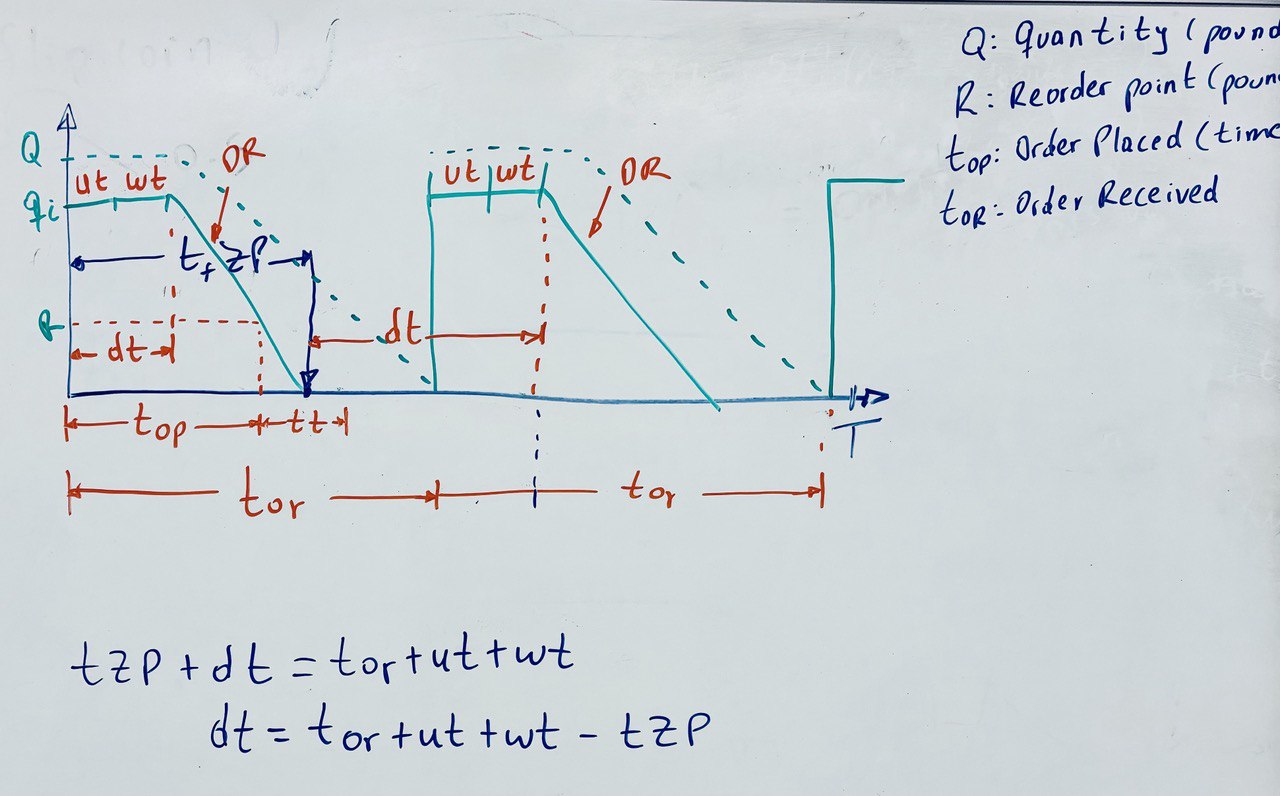 Q: Quantity (pound
R: Reorder point (poun
top: Order Placed (time
toR: Order Received
Q
DR
ut wt
ut wt
DR
qi
tf zp
R
dt
dt
top
tt
T
tor
tor
tzp + dt = tor + ut + wt
dt = tor + ut + wt - tzp